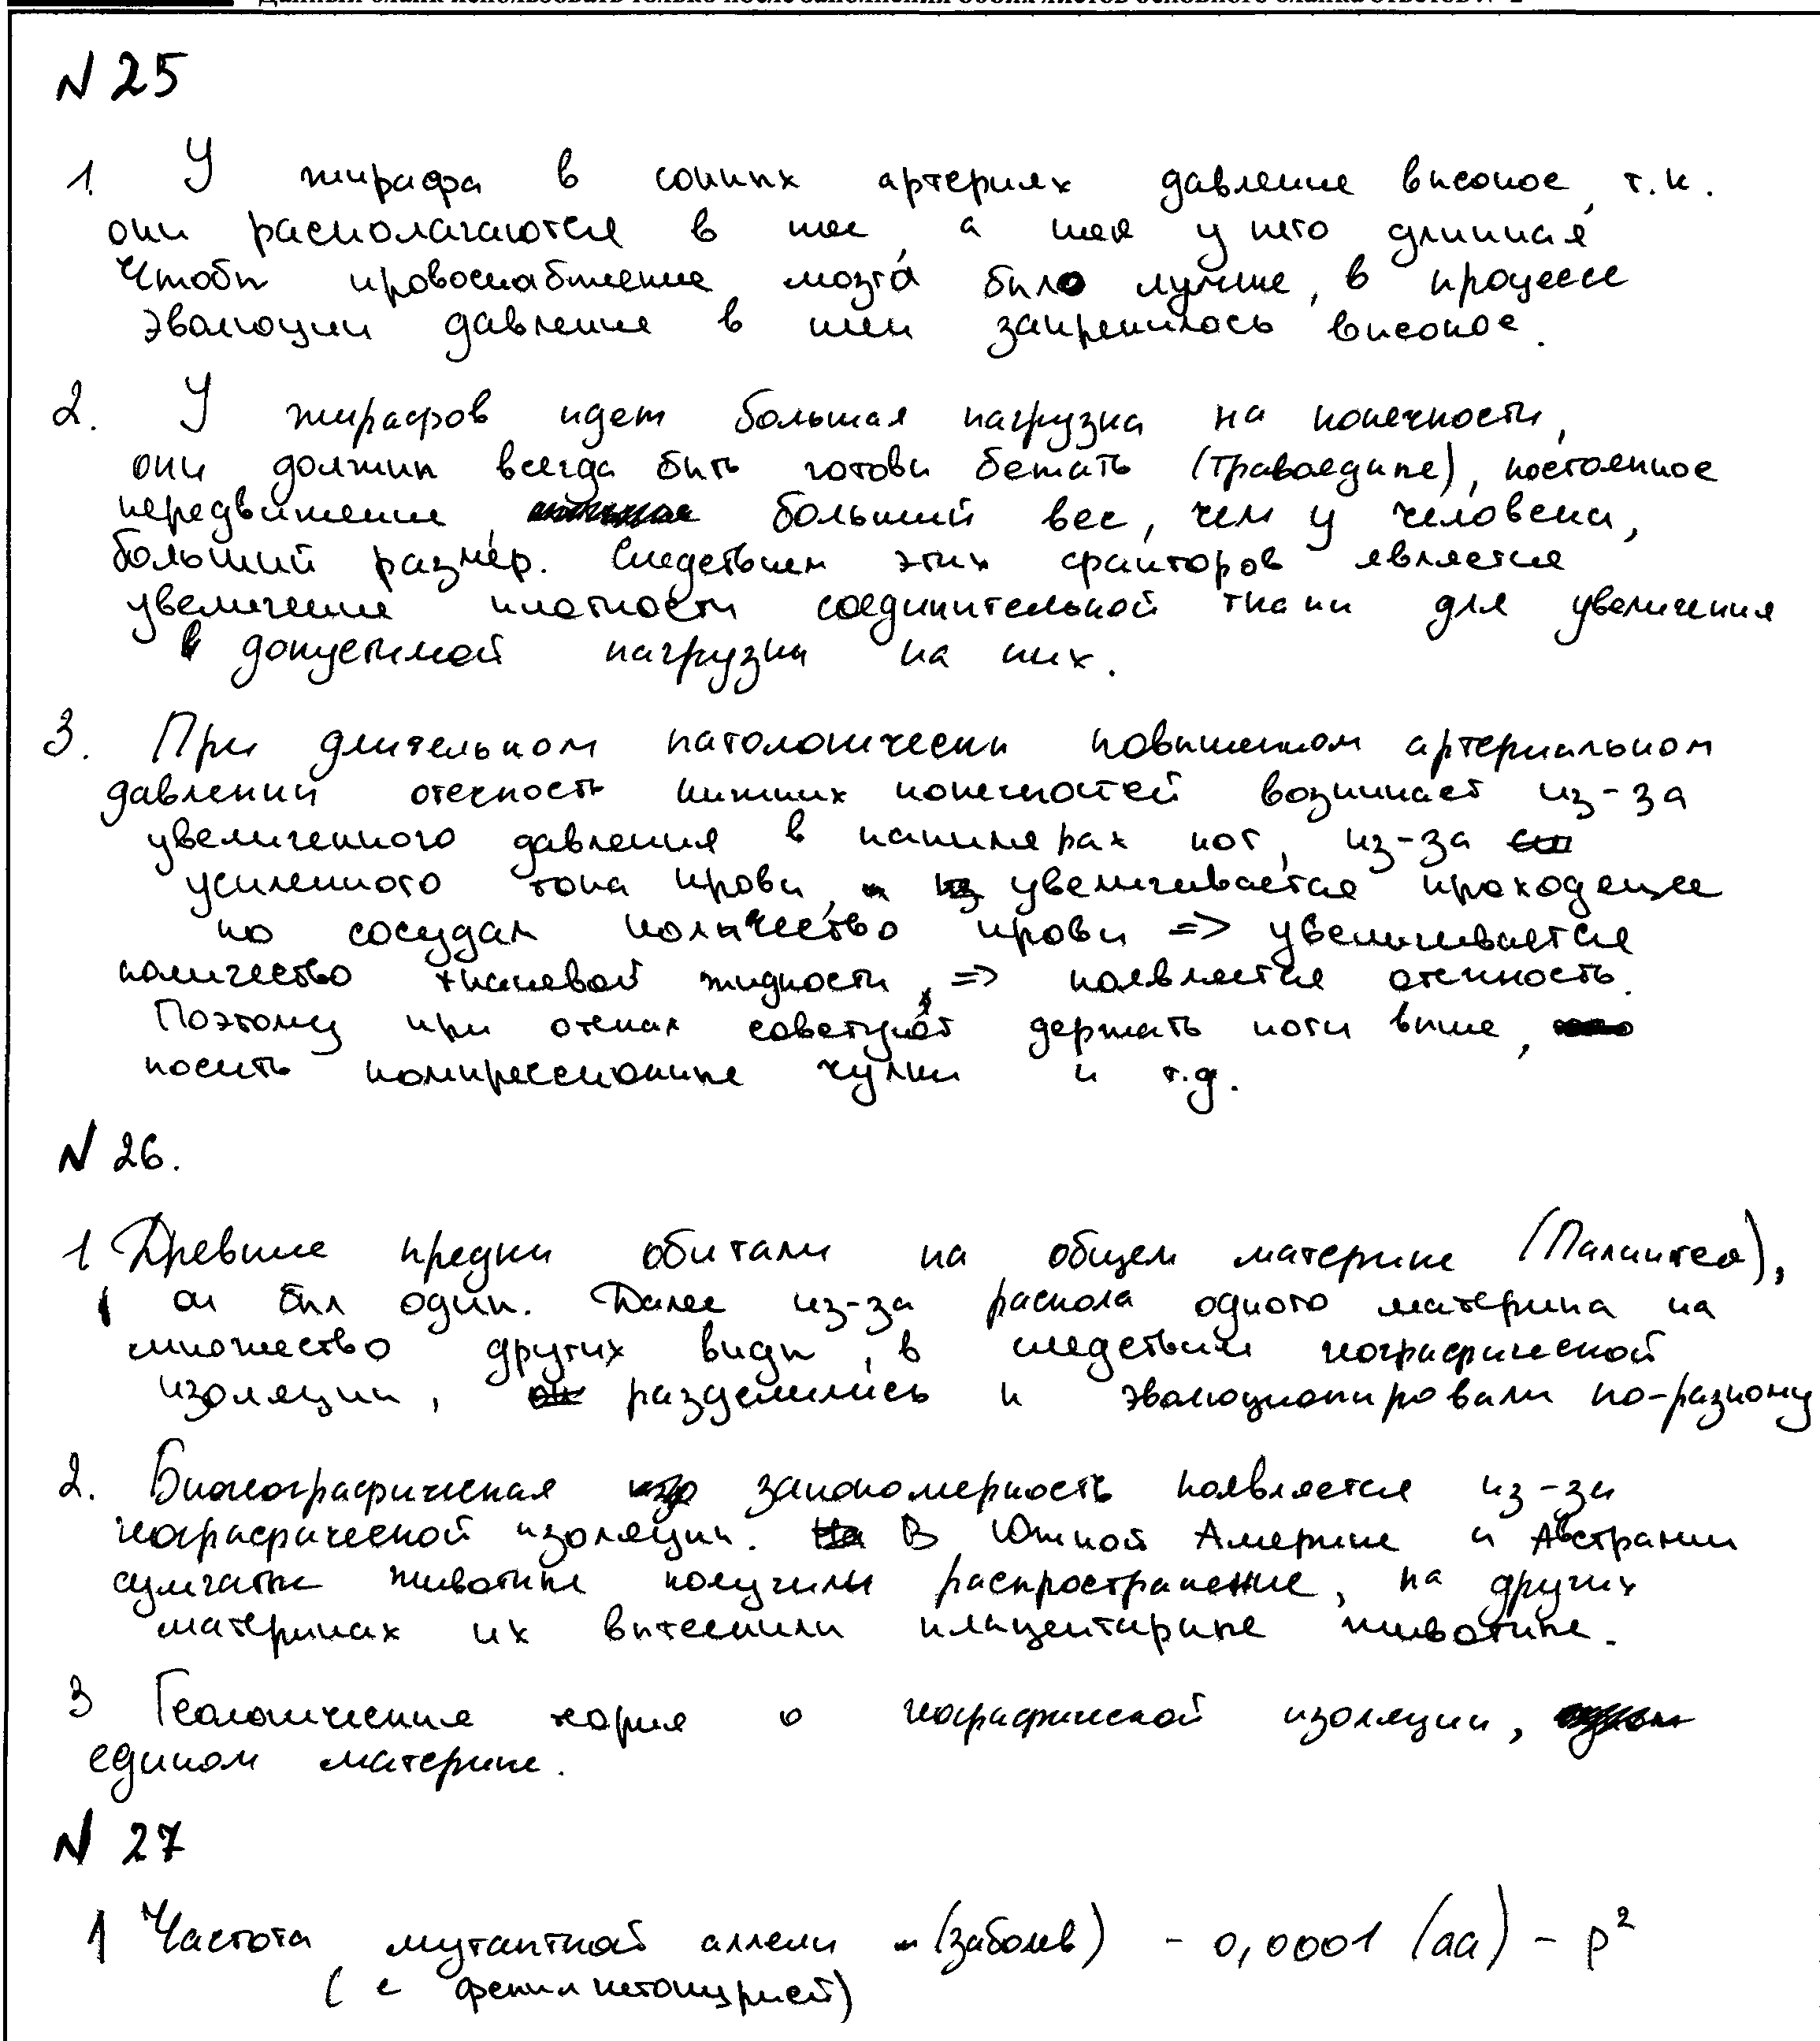 N 25
1. У жирафа в сонных артериях давление высокое, т.к.
они располагаются в шее, а шея у него длинная
Чтобы кровоснабжение мозга было лучше, в процессе
эволюции давление в шеи закрепилось высокое.
2. У жирафов идет большая нагрузка на конечности,
они должны всегда быть готовы бежать (травоядные), постоянное
передвижение, больший вес, чем у человека,
больший размер. Следствием этих факторов является
увеличение плотности соединительной ткани для увеличения
допустимой нагрузки на них.
3. При длительном патологически повышенном артериальном
давлении отечность нижних конечностей возникает из-за
увеличенного давления в капилярах ног, из-за
усиленного тока крови, увеличивается проходящее
по сосудам количество крови => увеличивается
количество тканевой жидкости, => появляется отечность.
Поэтому при отеках советуют держать ноги выше,
носить компрессионные чулки и т.д.
N 26.
1 Древние предки обитали на общем материке (Палангея),
он был один. Далее из-за раскола одного материка на
множество других виды, в следствии географической
изоляции, разделились и эволюционировали по-разному
2. Биогеографическая закономерность появляется из-за
географической изоляции. В Южной Америке и Австралии
сумчатые животные получили распространение, на других
материках их вытеснили плацентарные животные.
3 Геологическия теория о географической изоляции,
едином материке.
N 27
1 Частота мутантной аллели - (заболев) - 0,0001 (aa) - p²
( с фенилкетонурией)